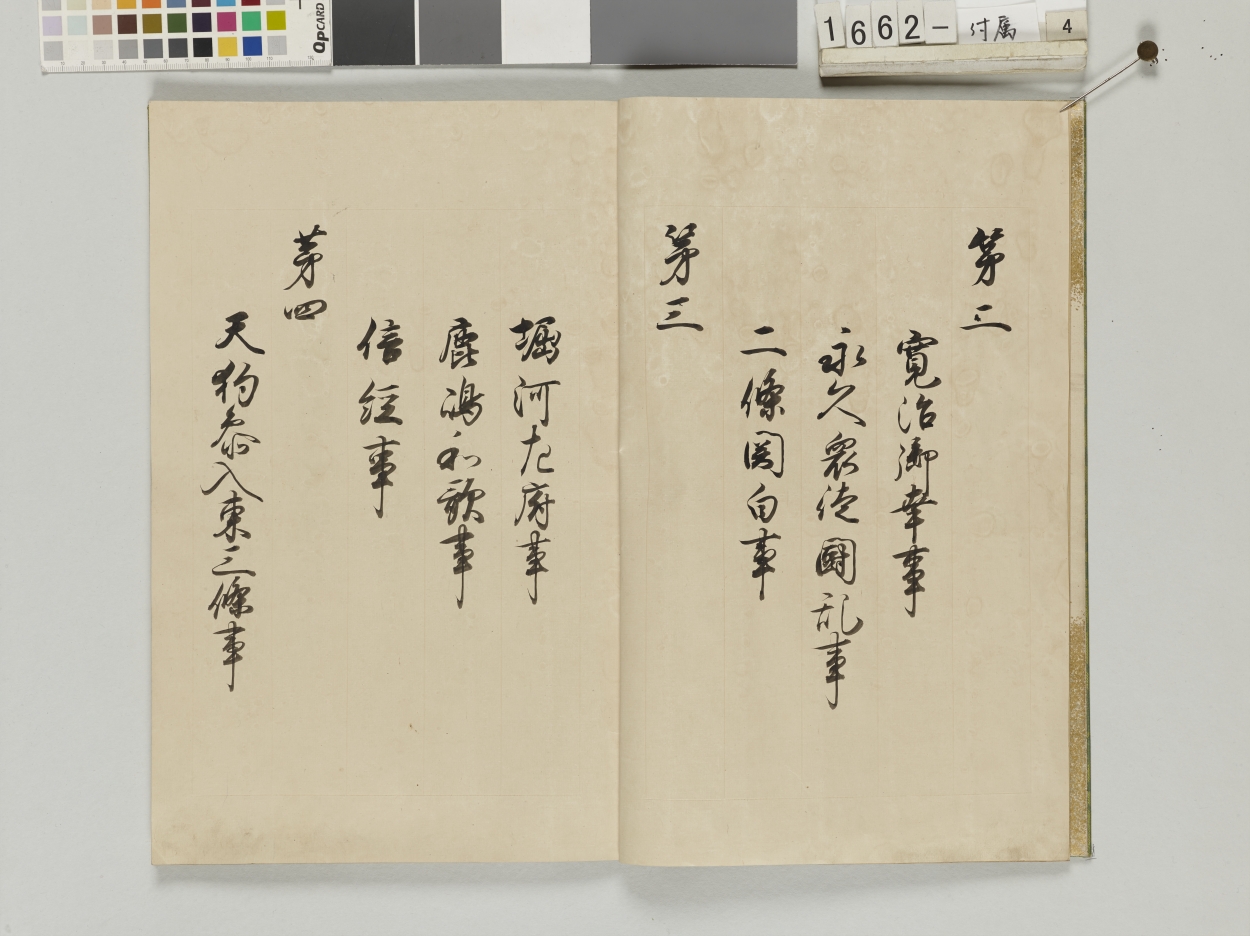 1662-付属 4
QPCARD
第二
寛治御幸事
永久衆徒闘乱事
二條関白事
第三
堀河左府事
鹿嶋和歌事
信經事
第四
天狗参入東三條事